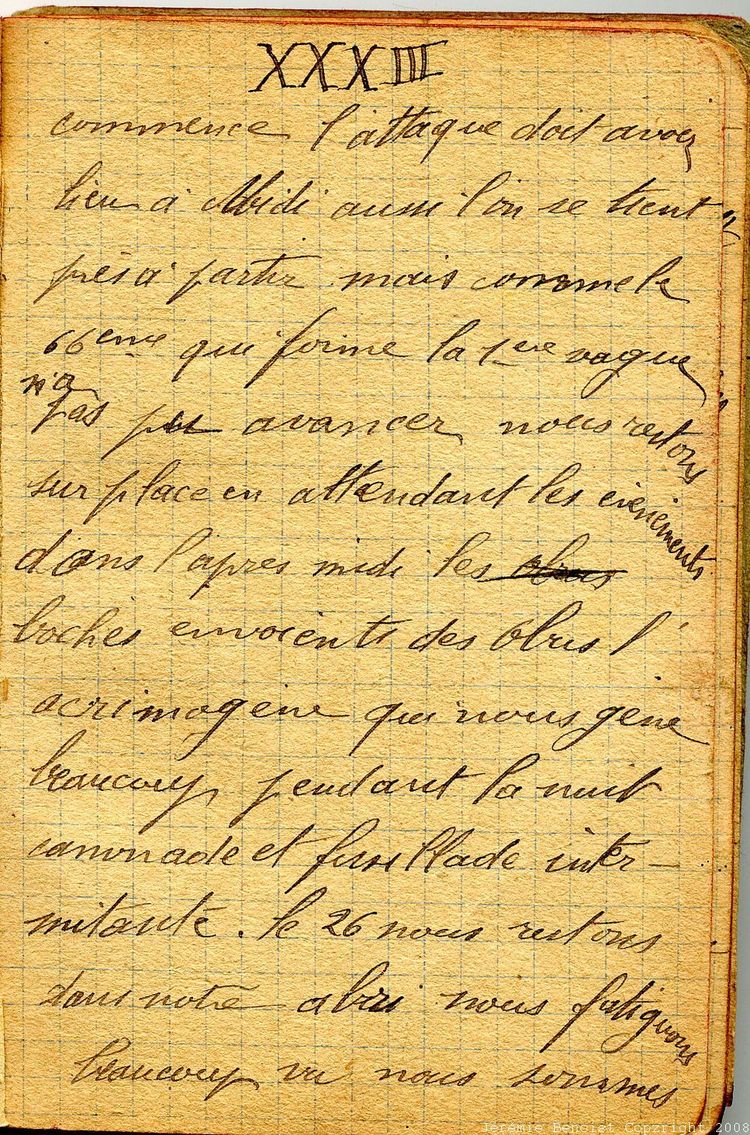 XXXIII
commence l'attaque doit avoir
lieu à Midi aussi l'on se tient
près à partir mais comme le
66eme qui forme la 1ere vague
n'a
pas pu avancer nous restons
sur place en attendant les évènements
dans l'après midi les obus
boches envoients des Obus l'
acrimogène qui nous gène
beaucoup pendant la nuit
canonade et fusillade inter-
mitante. le 26 nous restons
dans notre abri nous fatiguons
beaucoup vu nous sommes
Jérémie Benoist Copyright 2008